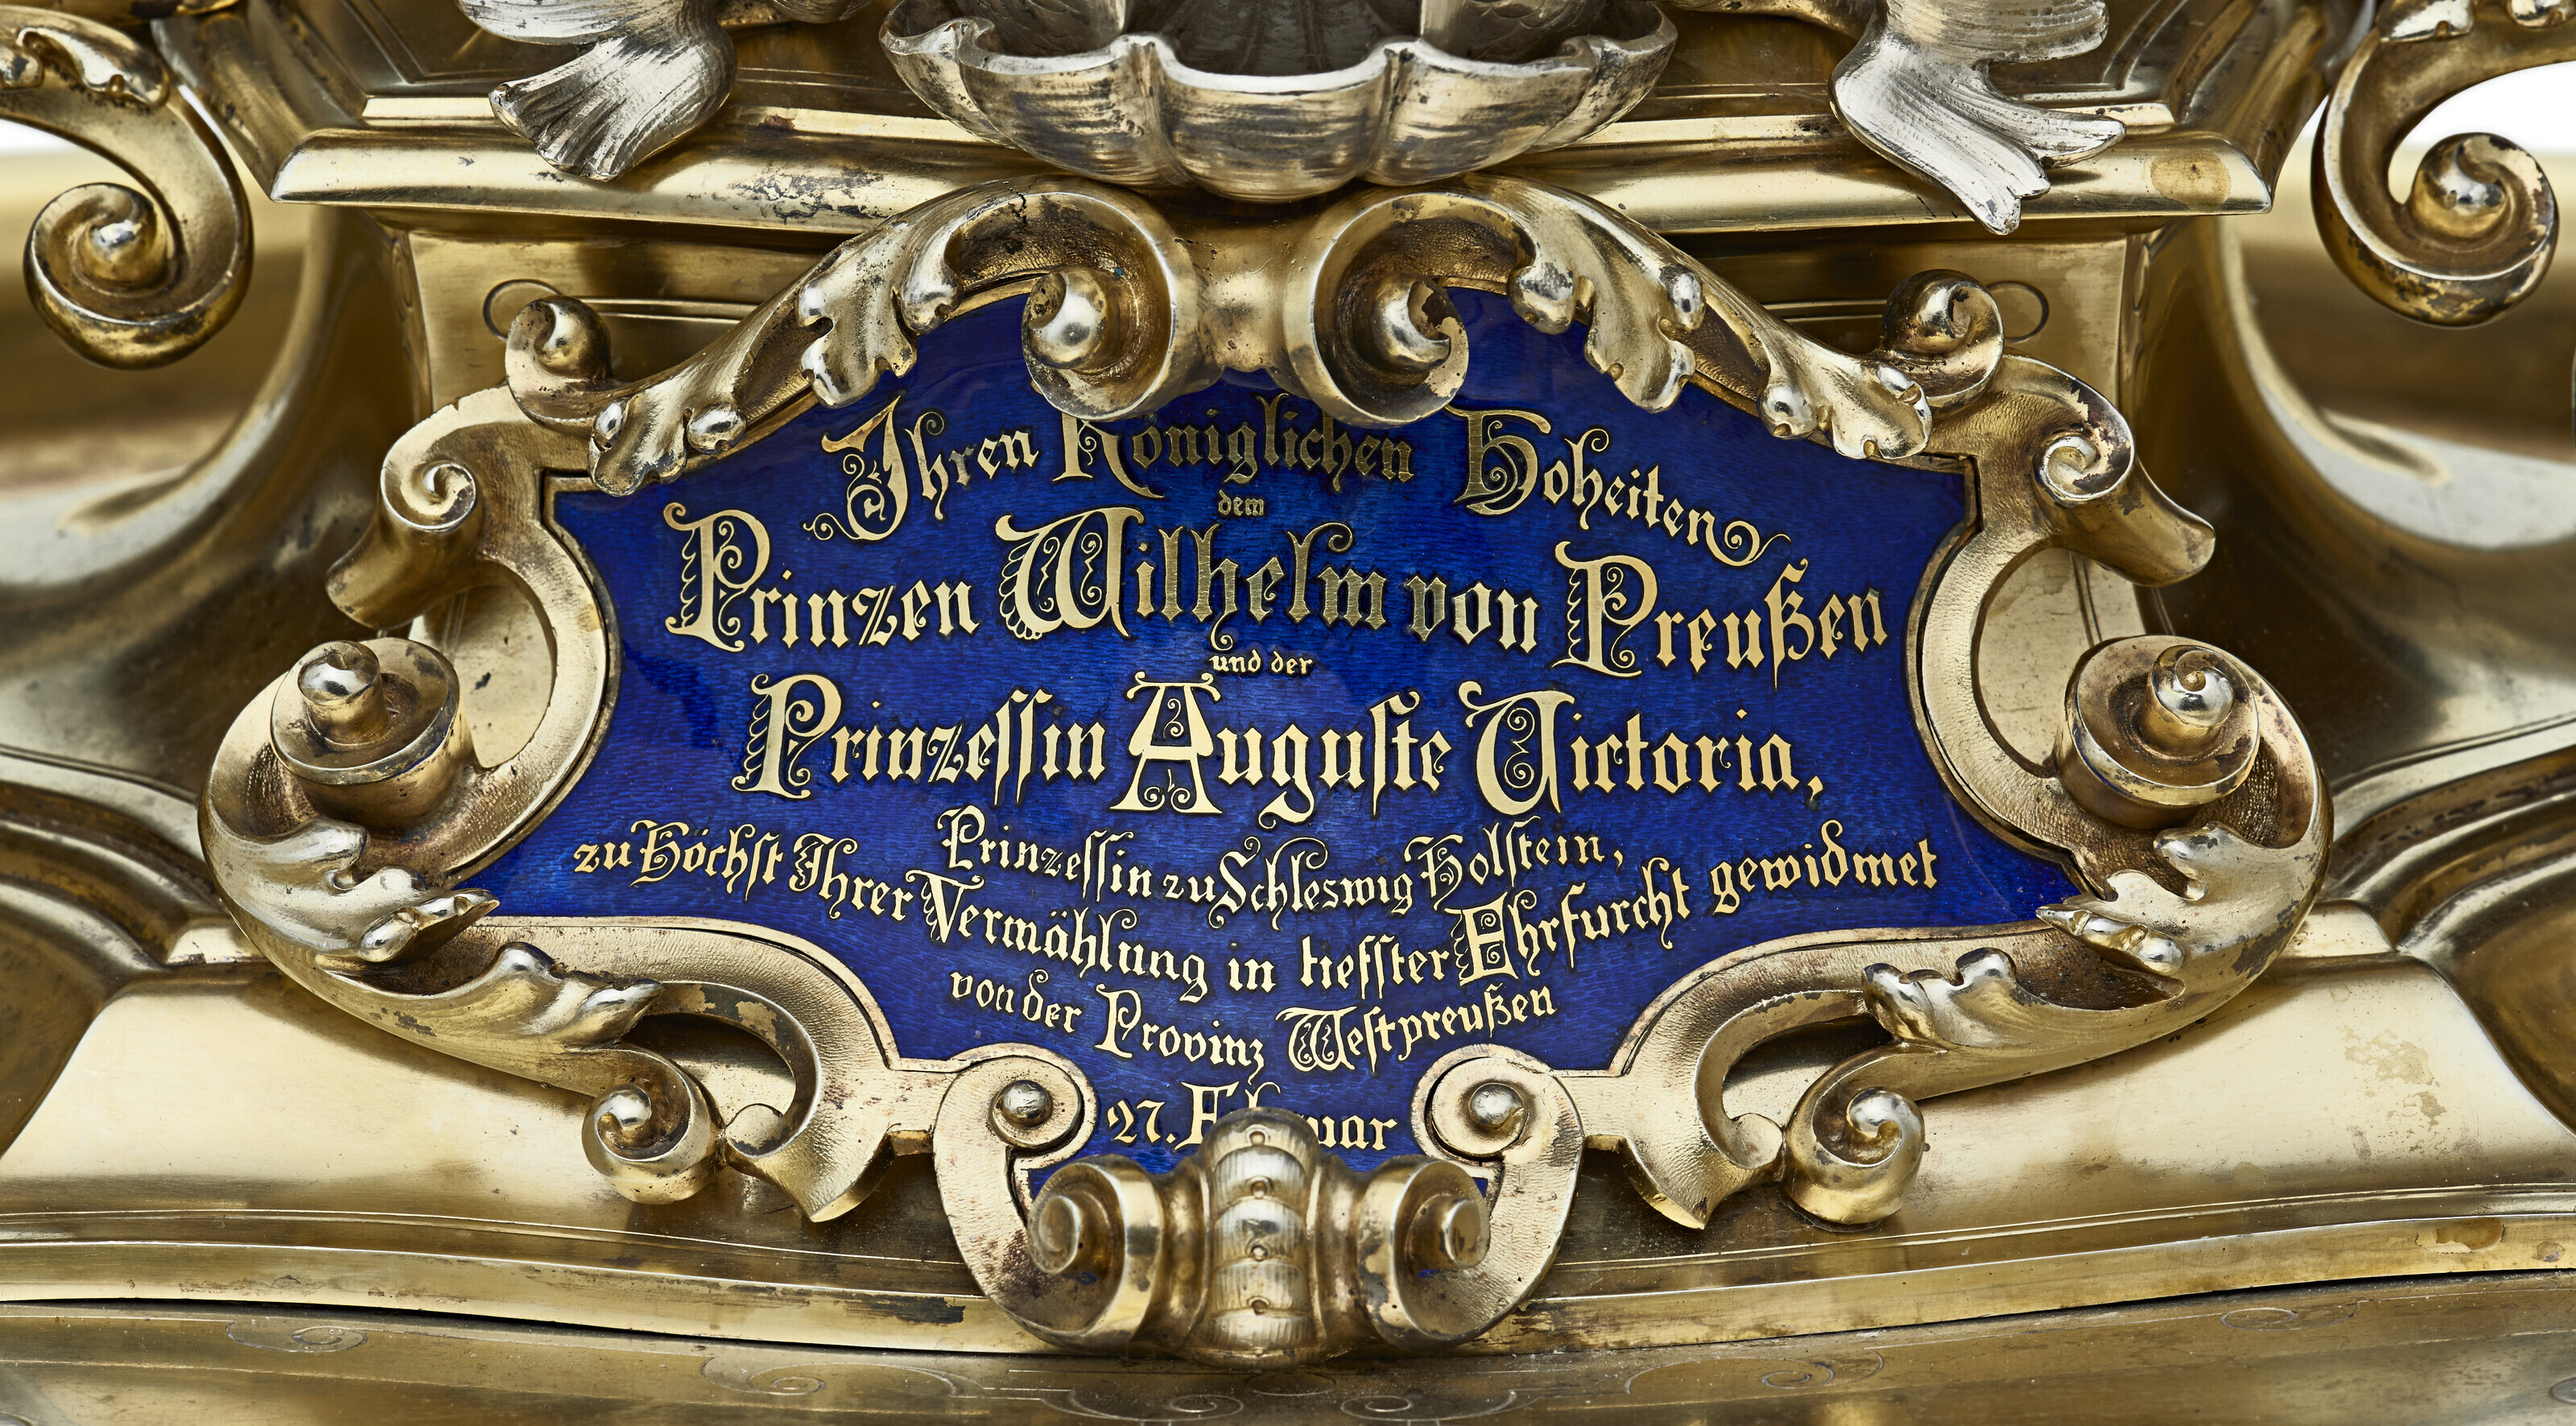 Ihren Königlichen Hoheiten
dem
Prinzen Wilhelm von Preußen
und der
Prinzessin Auguste Victoria,
Prinzessin zu Schleswig Holstein,
zu Höchst Ihrer Vermählung in tiefster Ehrfurcht gewidmet
von der Provinz Westpreußen
27.